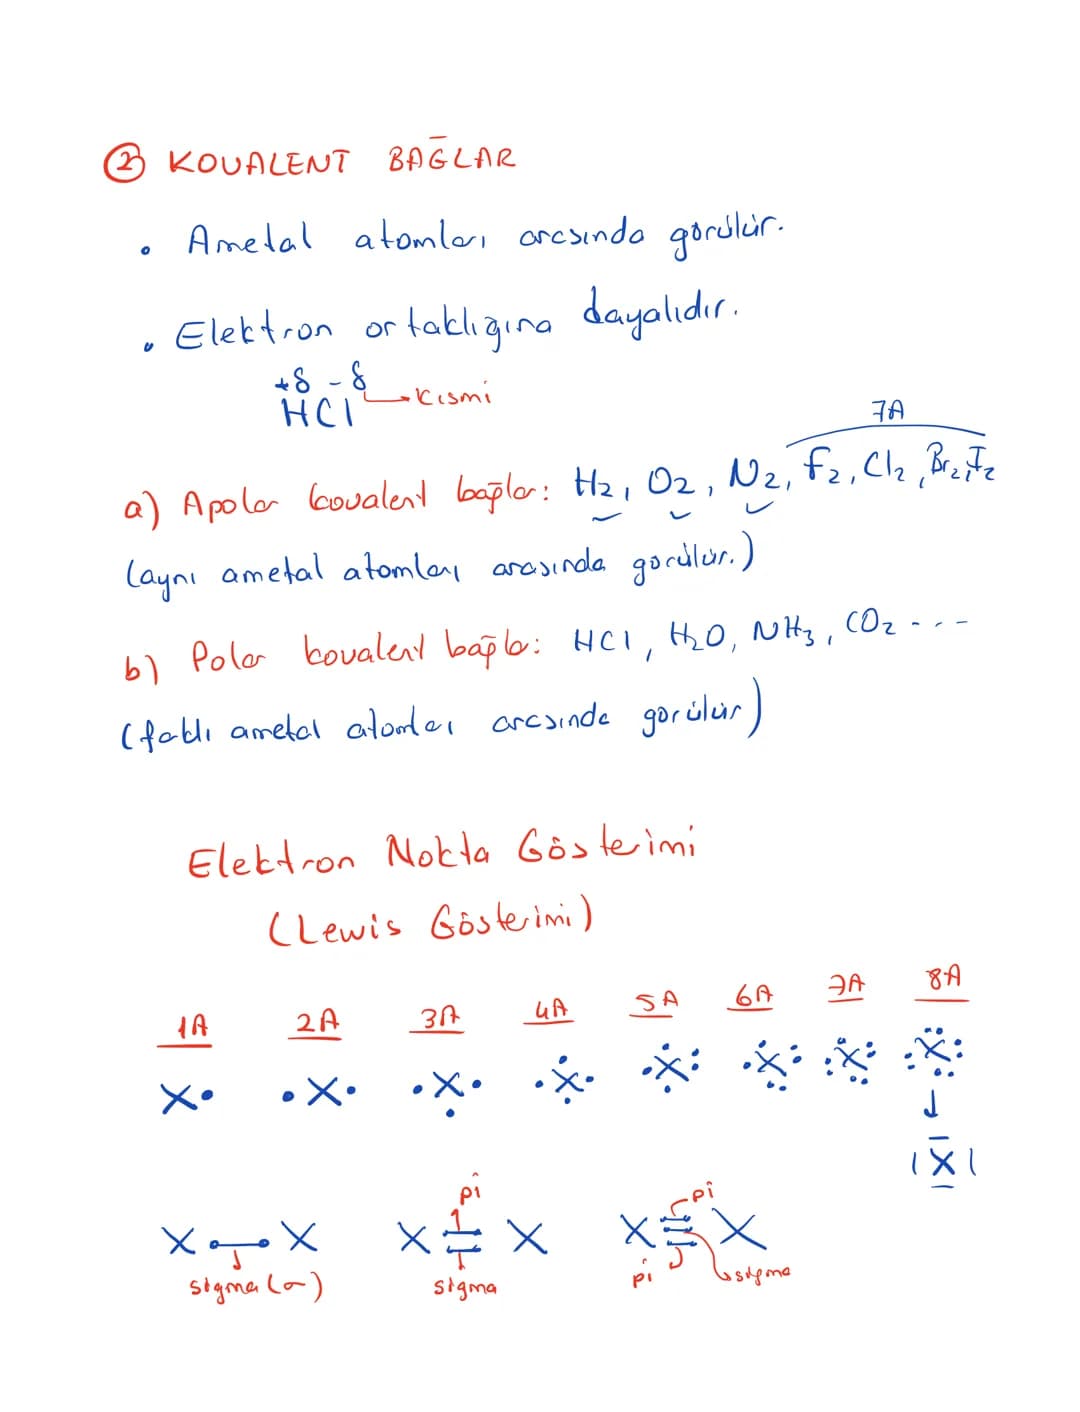 ② KOVALENT BAĞLAR
• Ametal atomları arasında görülür.
• Elektron ortaklığına dayalıdır.
+δ -δ
HCl Kısmi
7A
a) Apolar kovalent bağlar: H2, O2, N2, F2, Cl2, Br2, I2
(aynı ametal atomları arasında görülür.)
b) Polar kovalent bağlar: HCl, H2O, NH3, CO2 ----
(farklı ametal atomları arasında görülür)
Elektron Nokta Gösterimi
(Lewis Gösterimi)
1A 2A 3A 4A 5A 6A 7A 8A
X X X X X X X X
X
pi pi
X X X X X X
sigma (σ) sigma pi sigma